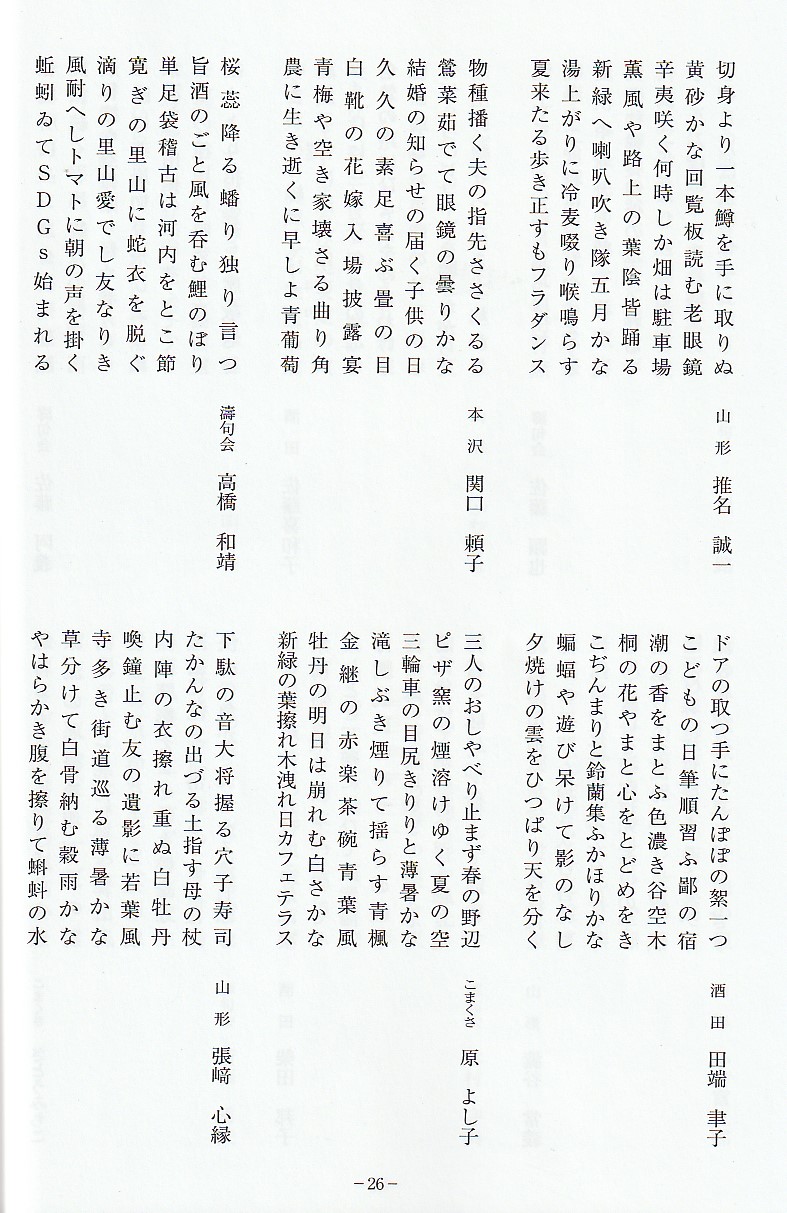 切身より一本鱒を手に取りぬ
山形　推名　誠一
黄砂かな回覧板読む老眼鏡
辛夷咲く何時しか畑は駐車場
薫風や路上の葉陰皆踊る
新緑へ喇叭吹き隊五月かな
湯上がりに冷麦啜り喉鳴らす
夏来たる歩き正すもフラダンス
物種播く夫の指先ささくるる
本沢　関口　頼子
鶯菜茹でて眼鏡の曇りかな
結婚の知らせの届く子供の日
久久の素足喜ぶ畳の目
白靴の花嫁入場披露宴
青梅や空き家壊さる曲り角
農に生き逝くに早しよ青葡萄
桜蕊降る蟠り独り言つ
濤句会　高橋　和靖
旨酒のごと風を呑む鯉のぼり
単足袋稽古は河内をとこ節
寛ぎの里山に蛇衣を脱ぐ
滴りの里山愛でし友なりき
風耐へしトマトに朝の声を掛く
蚯蚓ゐてSDGs始まれる
ドアの取つ手にたんぽぽの絮一つ
酒田　田端　聿子
こどもの日筆順習ふ鄙の宿
潮の香をまとふ色濃き谷空木
桐の花やまと心をとどめをき
こぢんまりと鈴蘭集ふかほりかな
蝙蝠や遊び呆けて影のなし
夕焼けの雲をひつぱり天を分く
三人のおしやべり止まず春の野辺
こまくさ　原　よし子
ピザ窯の煙溶けゆく夏の空
三輪車の目尻きりりと薄暑かな
滝しぶき煙りて揺らす青楓
金継の赤楽茶碗青葉風
牡丹の明日は崩れむ白さかな
新緑の葉擦れ木洩れ日カフェテラス
下駄の音大将握る穴子寿司
山形　張﨑　心縁
たかんなの出づる土指す母の杖
内陣の衣擦れ重ぬ白牡丹
喚鐘止む友の遺影に若葉風
寺多き街道巡る薄暑かな
草分けて白骨納む穀雨かな
やはらかき腹を擦りて蝌蚪の水
－26－